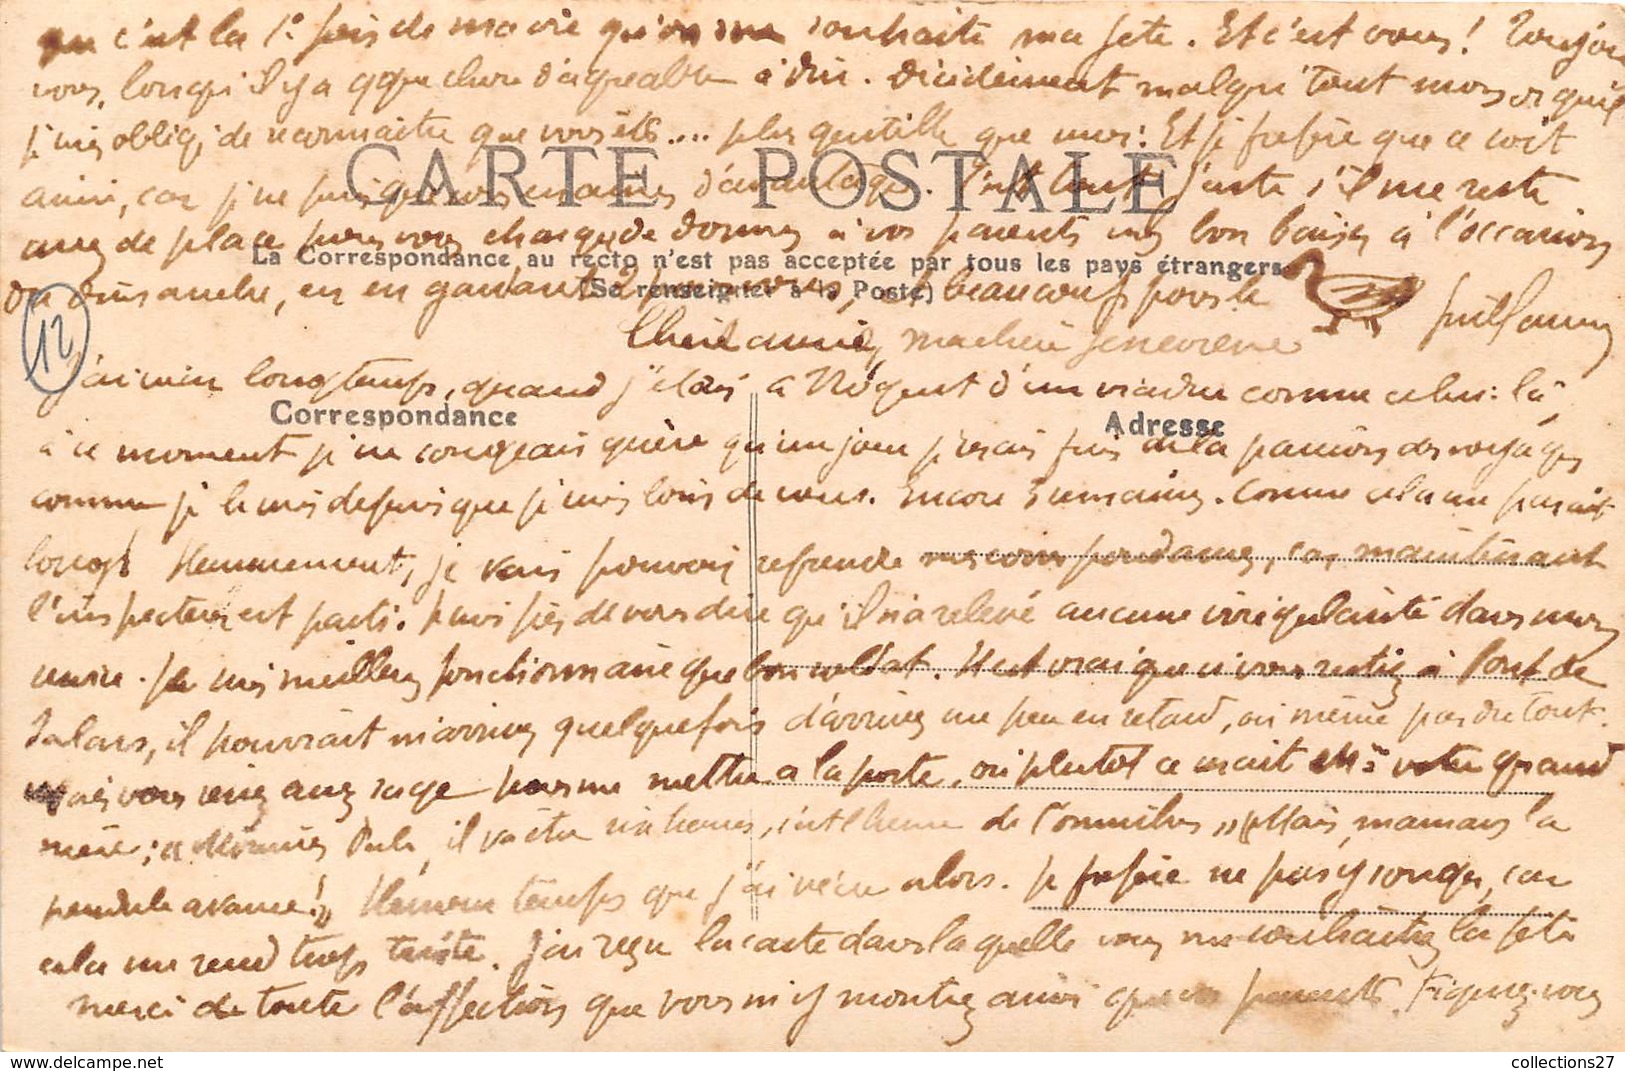 c'est la 1e fois de ma vie qu'on me souhaite ma fête. Et c'est vous! Toujours
vous, lorsqu'il y a qque chose d'agréable à dire. Décidément malgré tout mon orgueil
je suis obligé de reconnaître que vous êtes.... plus gentille que moi! Et je préfère que ce soit
ainsi, car je ne puis que vous en aimer d'avantage. C'est tout juste s'il me reste
CARTE POSTALE
assez de place pour vous charger de donner à vos parents mes bons baisers à l'occasion
La Correspondance au recto n'est pas acceptée par tous les pays étrangers
du dimanche, en en gardant beaucoup pour le
(Se renseigner à la Poste)
Guillaume
12
Chère amie, ma chère Geneviève
J'ai vécu longtemps, quand j'étais à Nogent d'un viaduc comme celui-là,
Correspondance
Adresse
à ce moment je ne songeais guère qu'un jour je serais pris de la passion des voyages
comme je le suis depuis que je suis loin de vous. Encore 3 semaines. Comme cela me paraît
long! Heureusement, je vais pouvoir reprendre ma correspondance, car maintenant
l'inspecteur est parti. Je suis fier de vous dire qu'il n'a relevé aucune irrégularité dans mon
service. Je suis meilleur fonctionnaire que bon soldat. Il est vrai que si vous restiez à Pont de
Salars, il pourrait m'arriver quelquefois d'arriver un peu en retard, ou même pas du tout.
Mais vous seriez assez sage pour me mettre à la porte, ou plutôt ce serait Me votre grand
mère: "Monsieur Paul, il va être six heures, c'est l'heure de l'omnibus" "Mais, maman la
pendule avance!" Heureux temps que j'ai vécu alors. Je préfère ne pas y songer, car
cela me rend trop triste. J'ai reçu la carte dans laquelle vous me souhaitez la fête
merci de toute l'affection que vous m'y montrez ainsi que vos parents. Figurez-vous
collections27